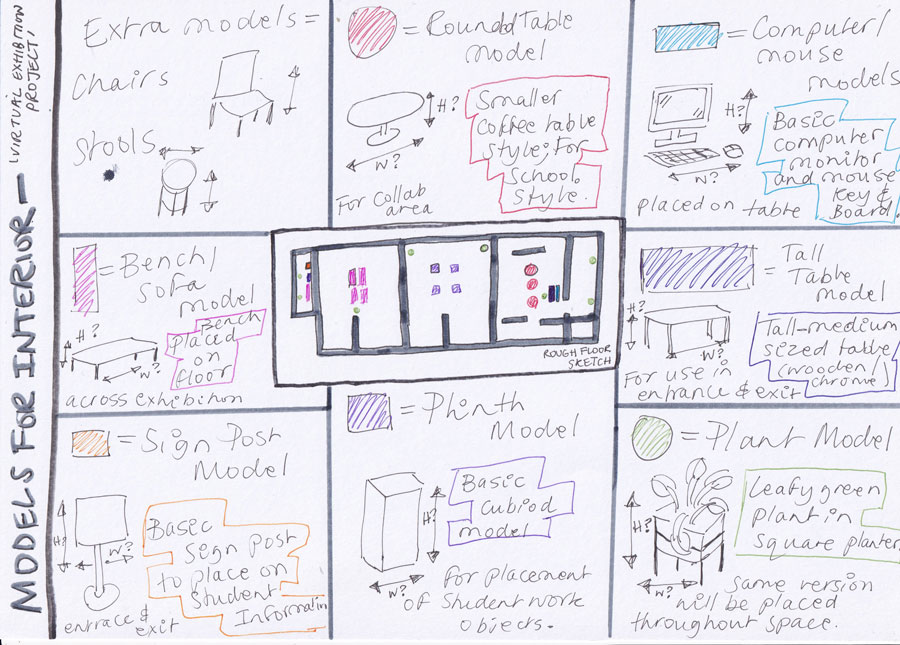 MODELS FOR INTERIOR -
'VIRTUAL EXHIBITION
PROJECT'
Extra models =
Chairs
Stools
= Rounded Table
model
H?
W?
Smaller
Coffee table
Style; For
School
Style.
For collab
area
= Computer/
mouse
models
H?
W?
Basic
computer
monitor
and mouse
Key &
Board.
placed on table
= Bench/
Sofa
model
H?
W?
Bench
placed
on
floor
across exhibition
ROUGH FLOOR
SKETCH
= Tall
Table
model
H?
W?
Tall-medium
sized table
(wooden/
chrome)
For use in
entrance & exit
= Sign Post
Model
H?
W?
Basic
Sign post
to place on
Student
Informatin
entrace &
exit
= Plinth
Model
H?
W?
Basic
Cubiod
model
For placement
of Student work
objects.
= Plant Model
H?
W?
Leafy green
plant in
square planter
Same version
will be placed
throughout space.